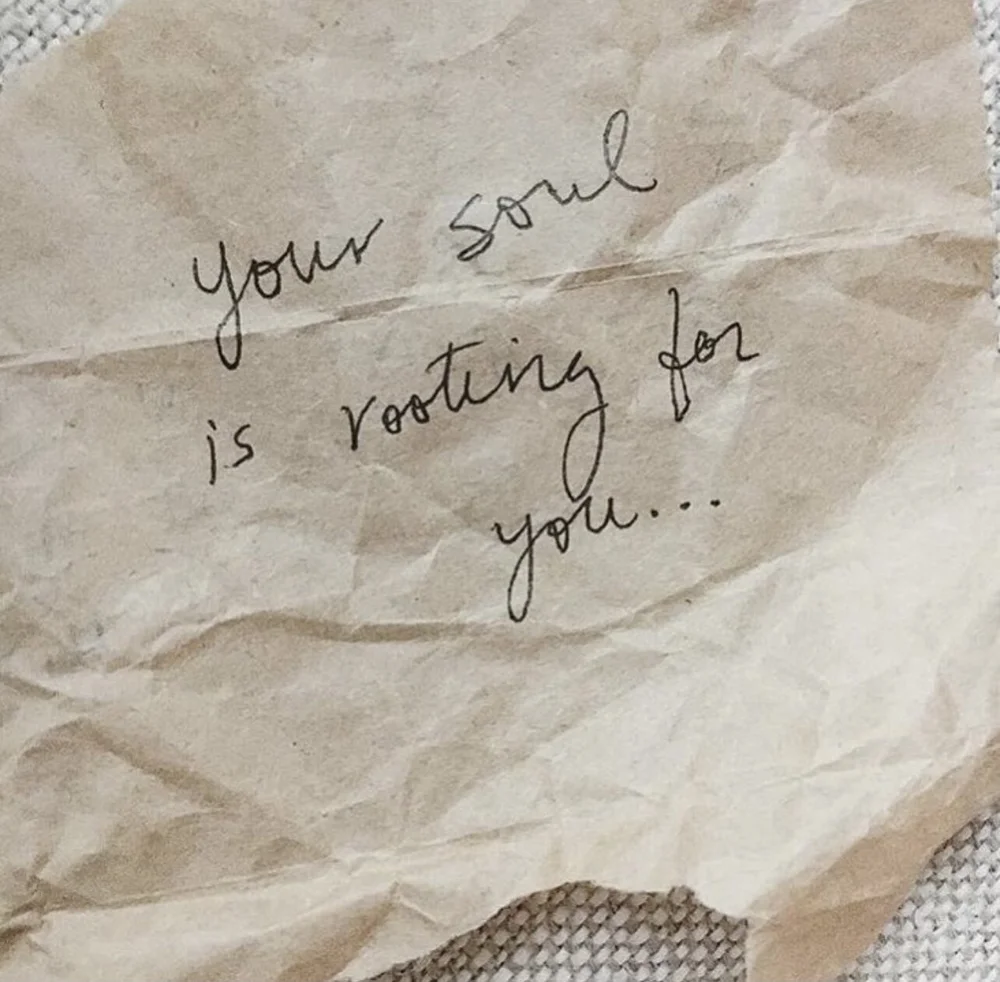 your soul
is rooting for
you...